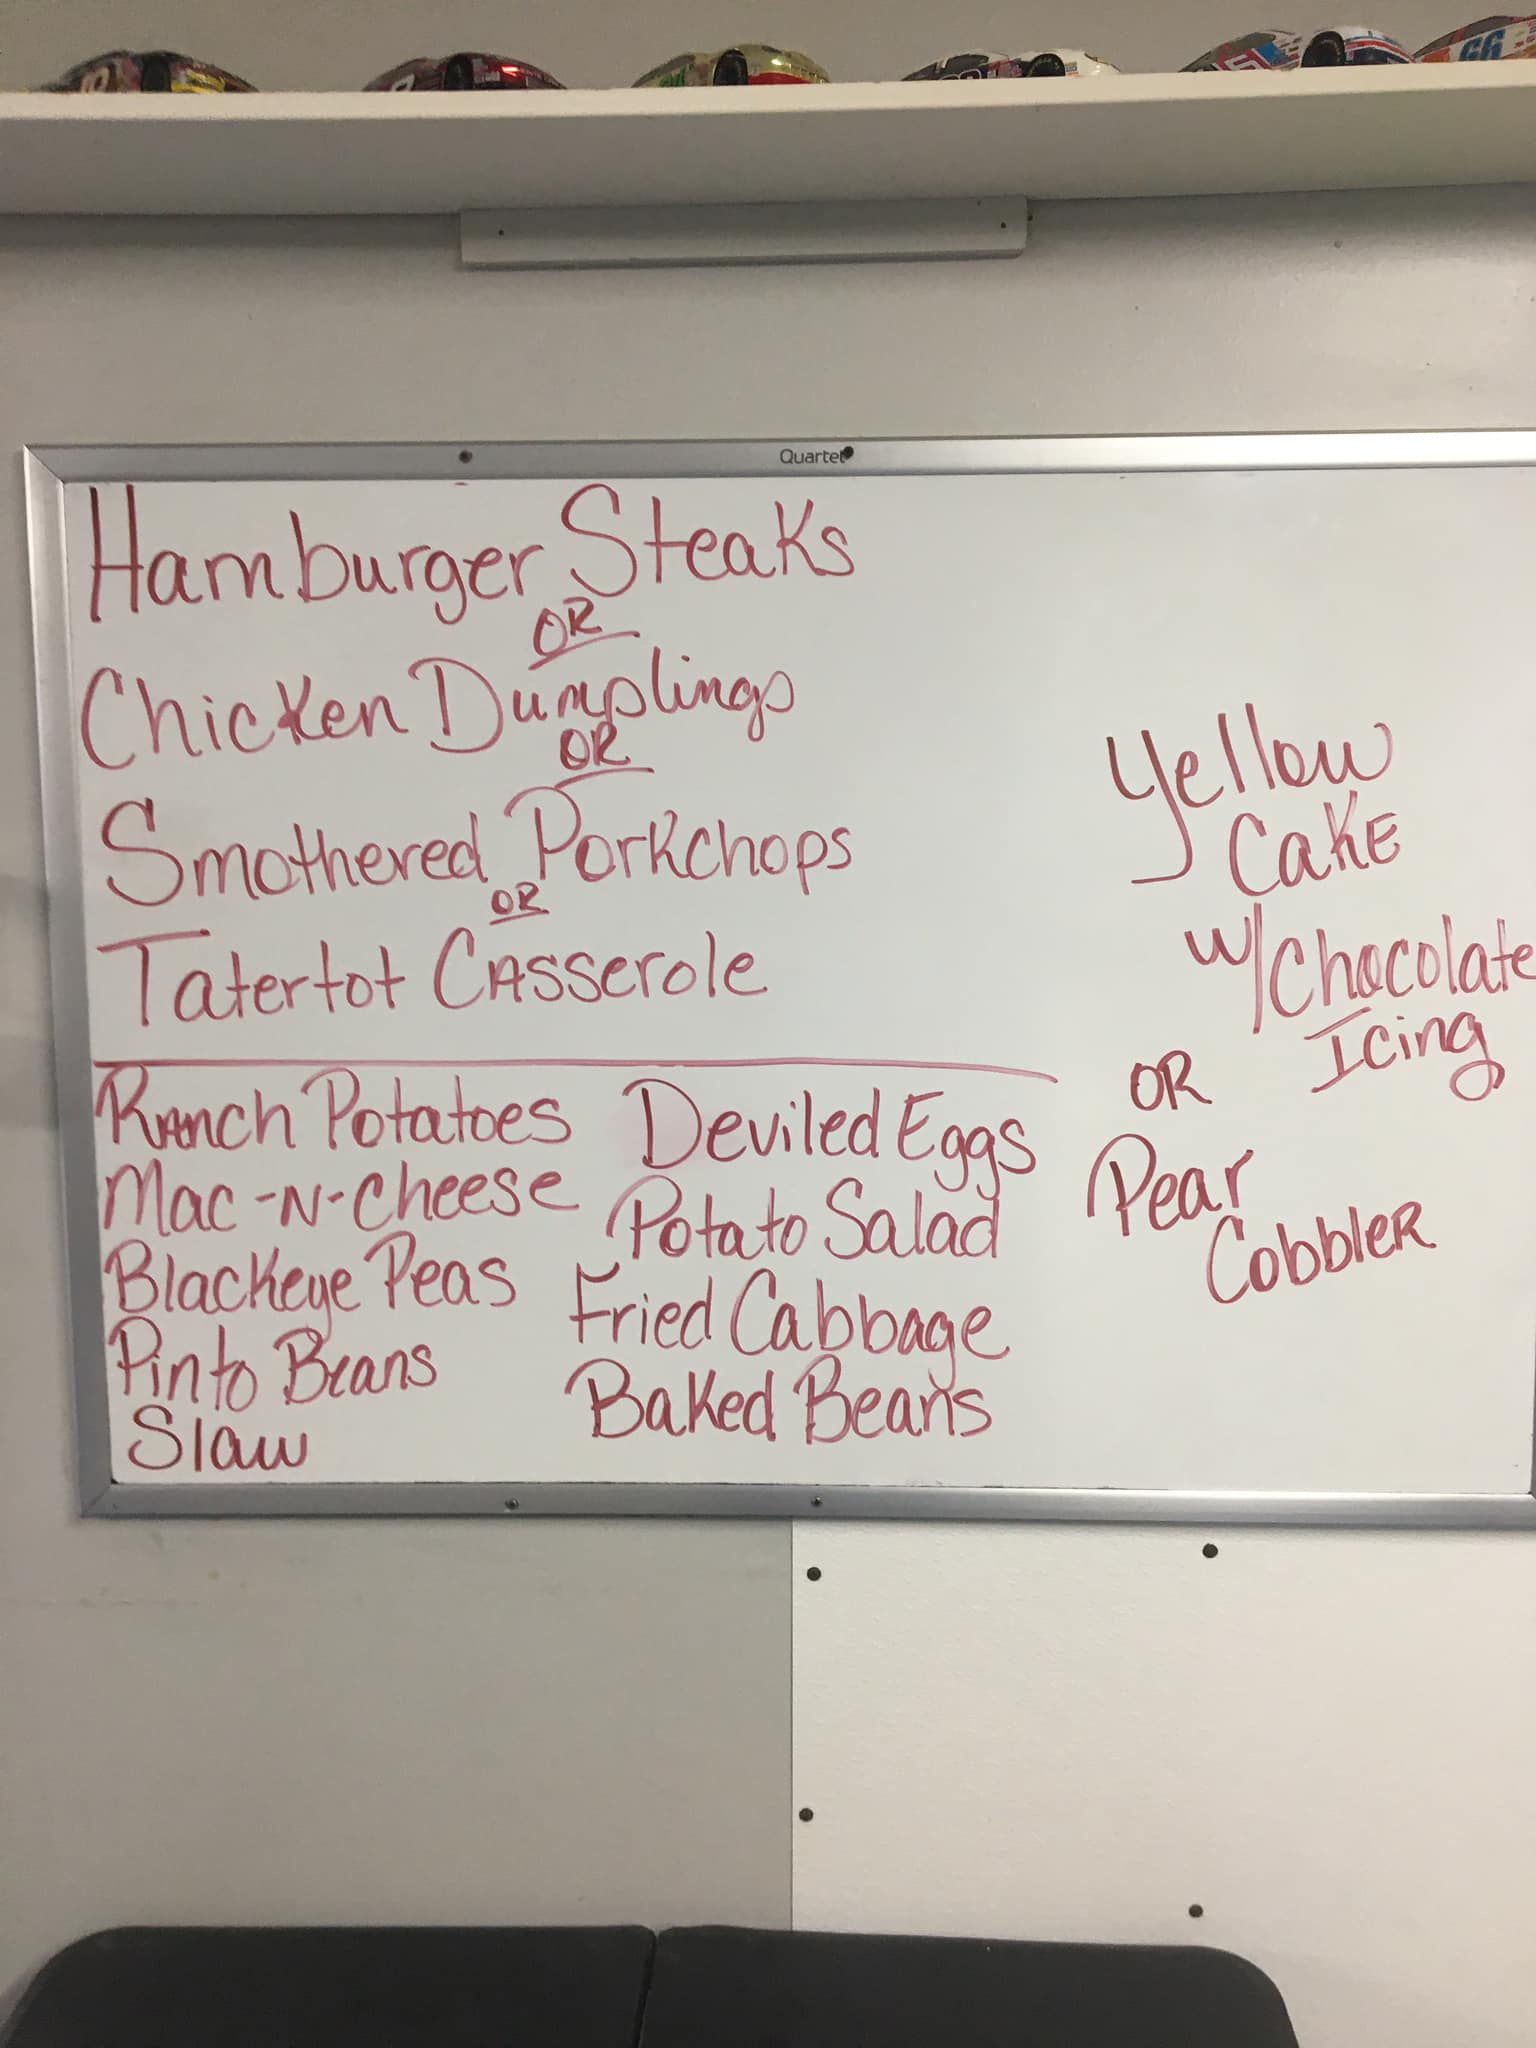 66
Quartet
Hamburger Steaks
OR
Chicken Dumplings
OR
Smothered Porkchops
OR
Tatertot Casserole
Ranch Potatoes
Mac-N-Cheese
Blackeye Peas
Pinto Beans
Slaw
Deviled Eggs
Potato Salad
Fried Cabbage
Baked Beans
Yellow
Cake
w/Chocolate
Icing
OR
Pear
Cobbler